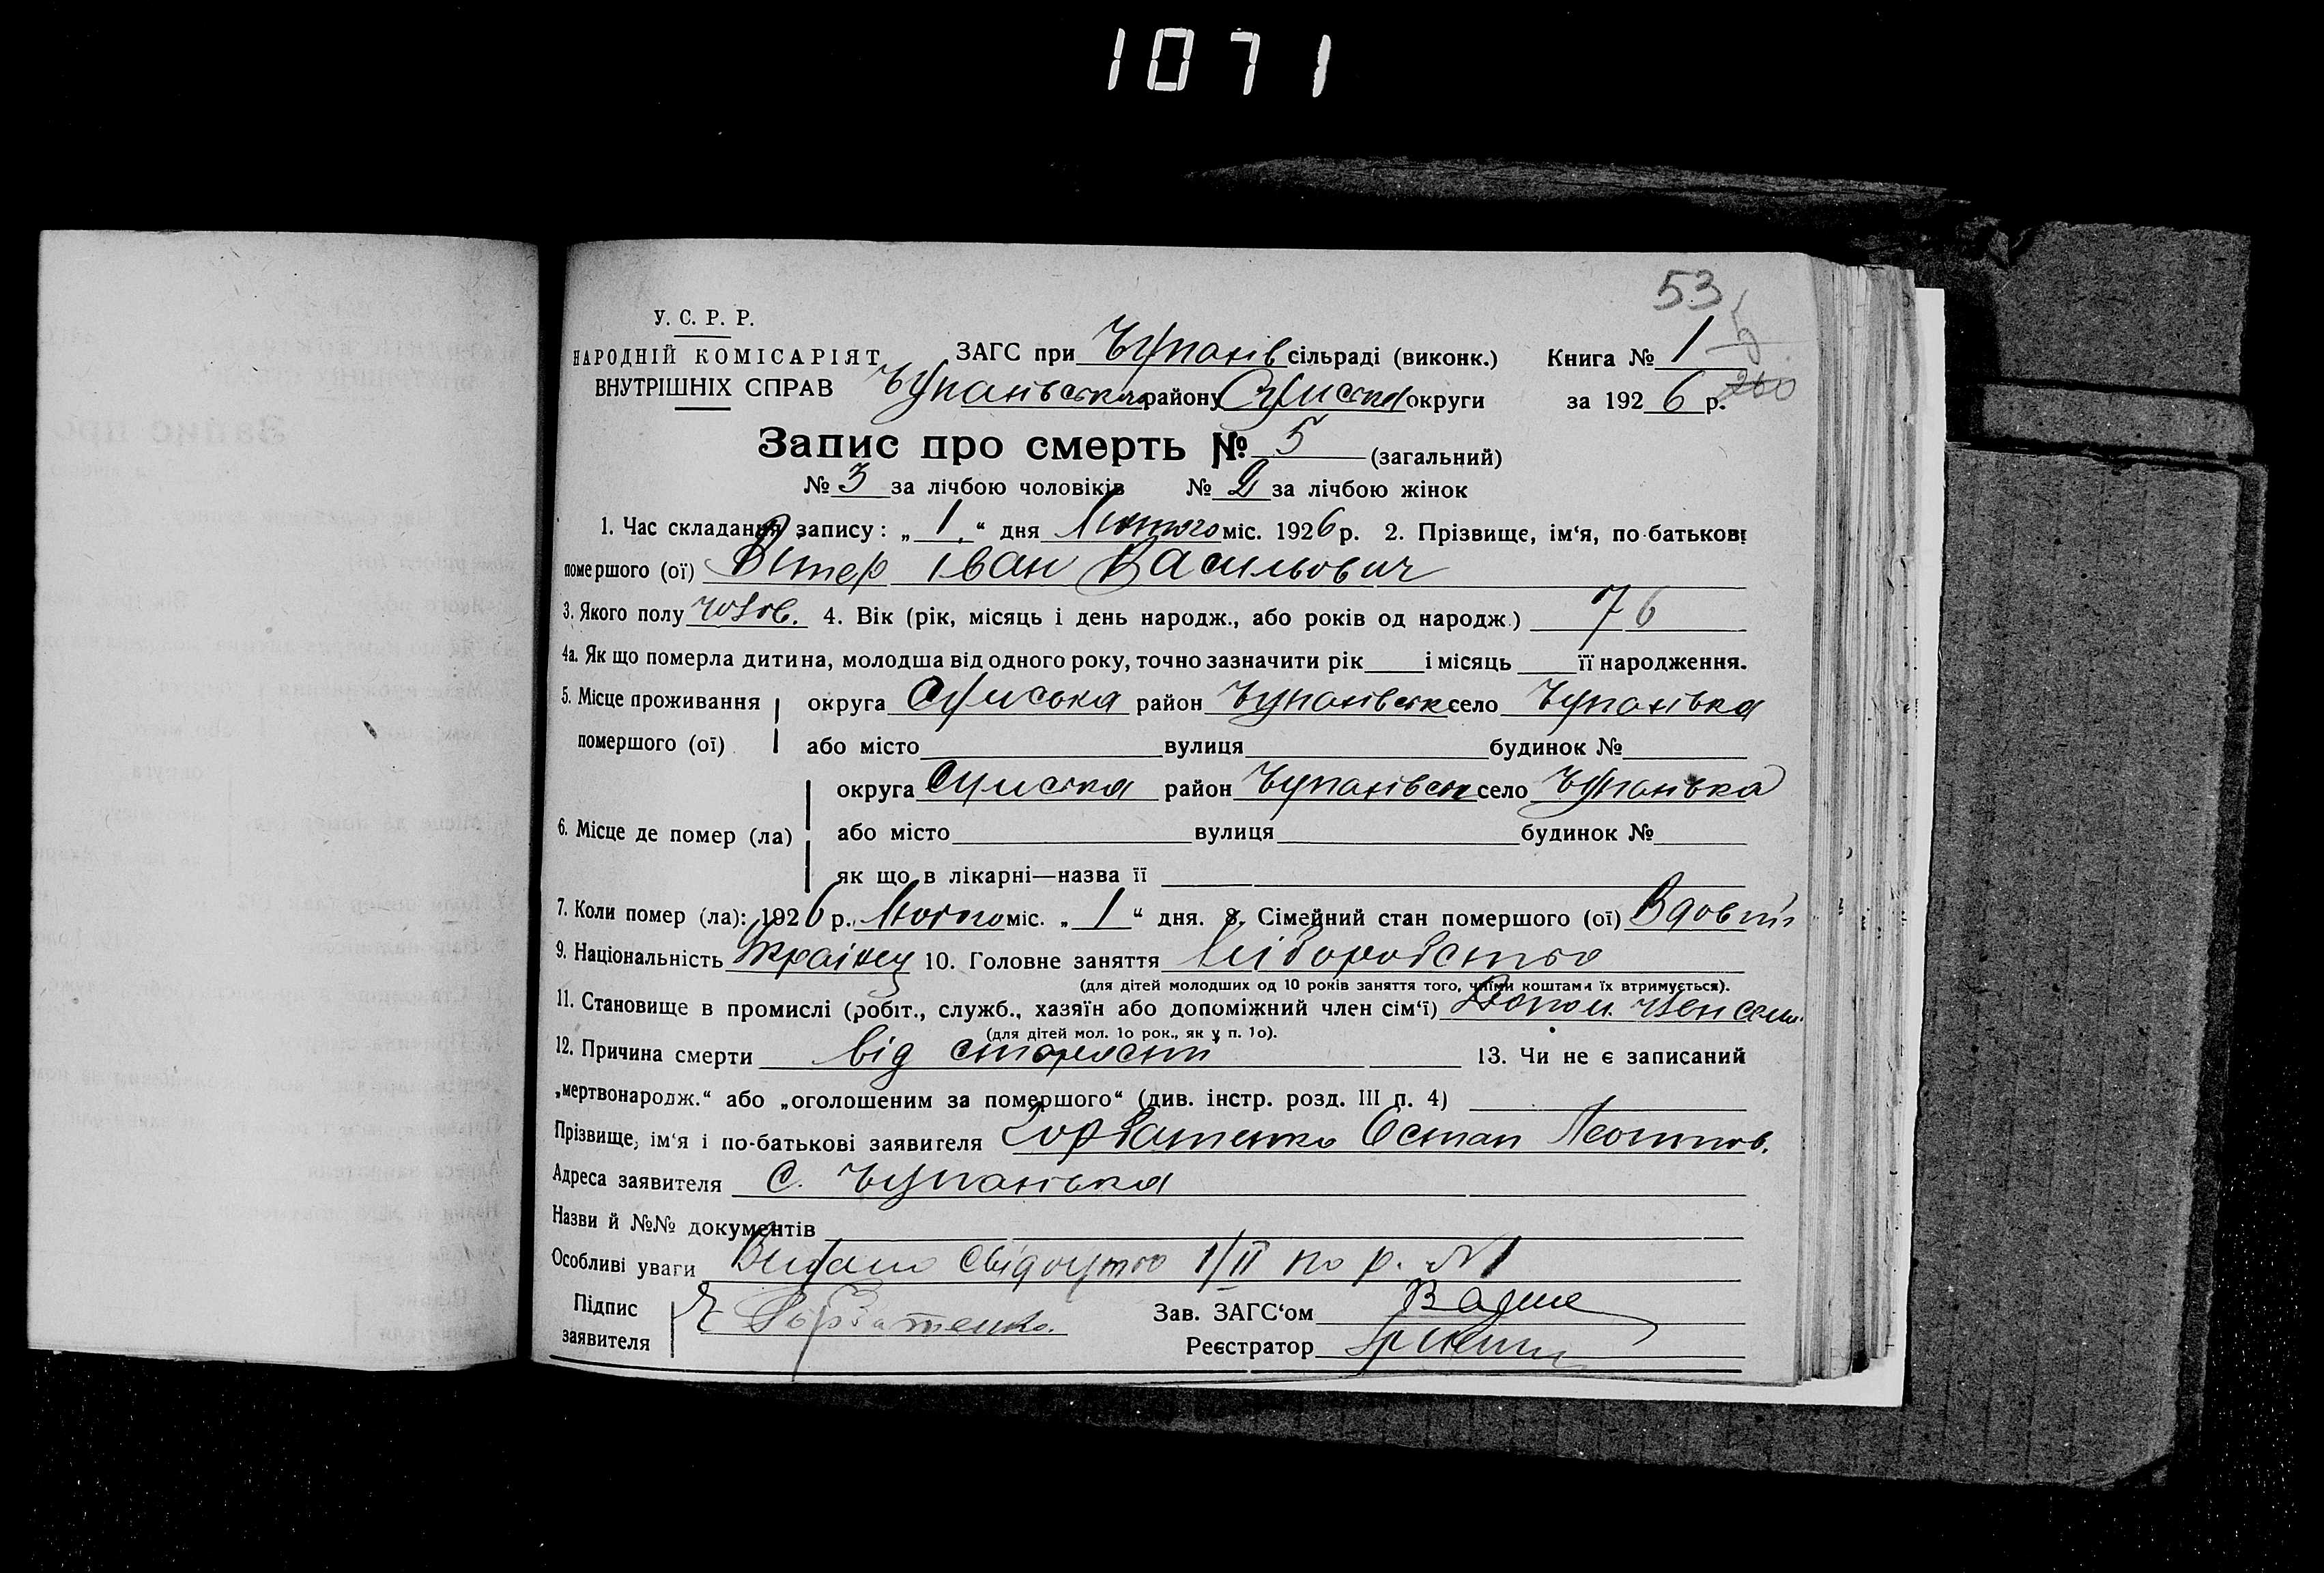 1071
53
У. С. Р. Р.
НАРОДНІЙ КОМІСАРІЯТ
ВНУТРІШНІХ СПРАВ
ЗАГС при Чупахів сільраді (виконк.) Книга № 1
Чупахівського району Сумської округи за 1926 р.
260
Запис про смерть № 5 (загальний)
№ 3 за лічбою чоловіків № 2 за лічбою жінок
1. Час складання запису: „1“ дня Лютого міс. 1926 р. 2. Прізвище, ім‘я, по-батькові
помершого (ої) Вітер Іван Васильович
3. Якого полу чолов. 4. Вік (рік, місяць і день народж., або років од народж.) 76
4а. Як що померла дитина, молодша від одного року, точно зазначити рік і місяць її народження.
5. Місце проживання округа Сумська район Чупахівськ село Чупахівка
помершого (ої) або місто вулиця будинок №
округа Сумська район Чупахівськ село Чупахівка
6. Місце де помер (ла) або місто вулиця будинок №
як що в лікарні—назва її
7. Коли помер (ла): 1926 р. Лютого міс. „1“ дня. 8. Сімейний стан помершого (ої) Вдовий
9. Національність Українец 10. Головне заняття хліборобство
(для дітей молодших од 10 років заняття того, чиїми коштами їх втримується).
11. Становище в промислі (робіт., служб., хазяїн або допоміжний член сім‘ї) Допом. член сем.
(для дітей мол. 10 рок., як у п. 10).
12. Причина смерти від старости 13. Чи не є записаний
„мертвонародж.“ або „оголошеним за помершого“ (див. інстр. розд. III п. 4)
Прізвище, ім‘я і по-батькові заявителя Горбатенко Остап
Адреса заявителя С. Чупахівка
Назви й №№ документів
Особливі уваги Видано свідоцтво 1/II по р. №1
Підпис
заявителя Горбатенко.
Зав. ЗАГС‘ом
Реєстратор